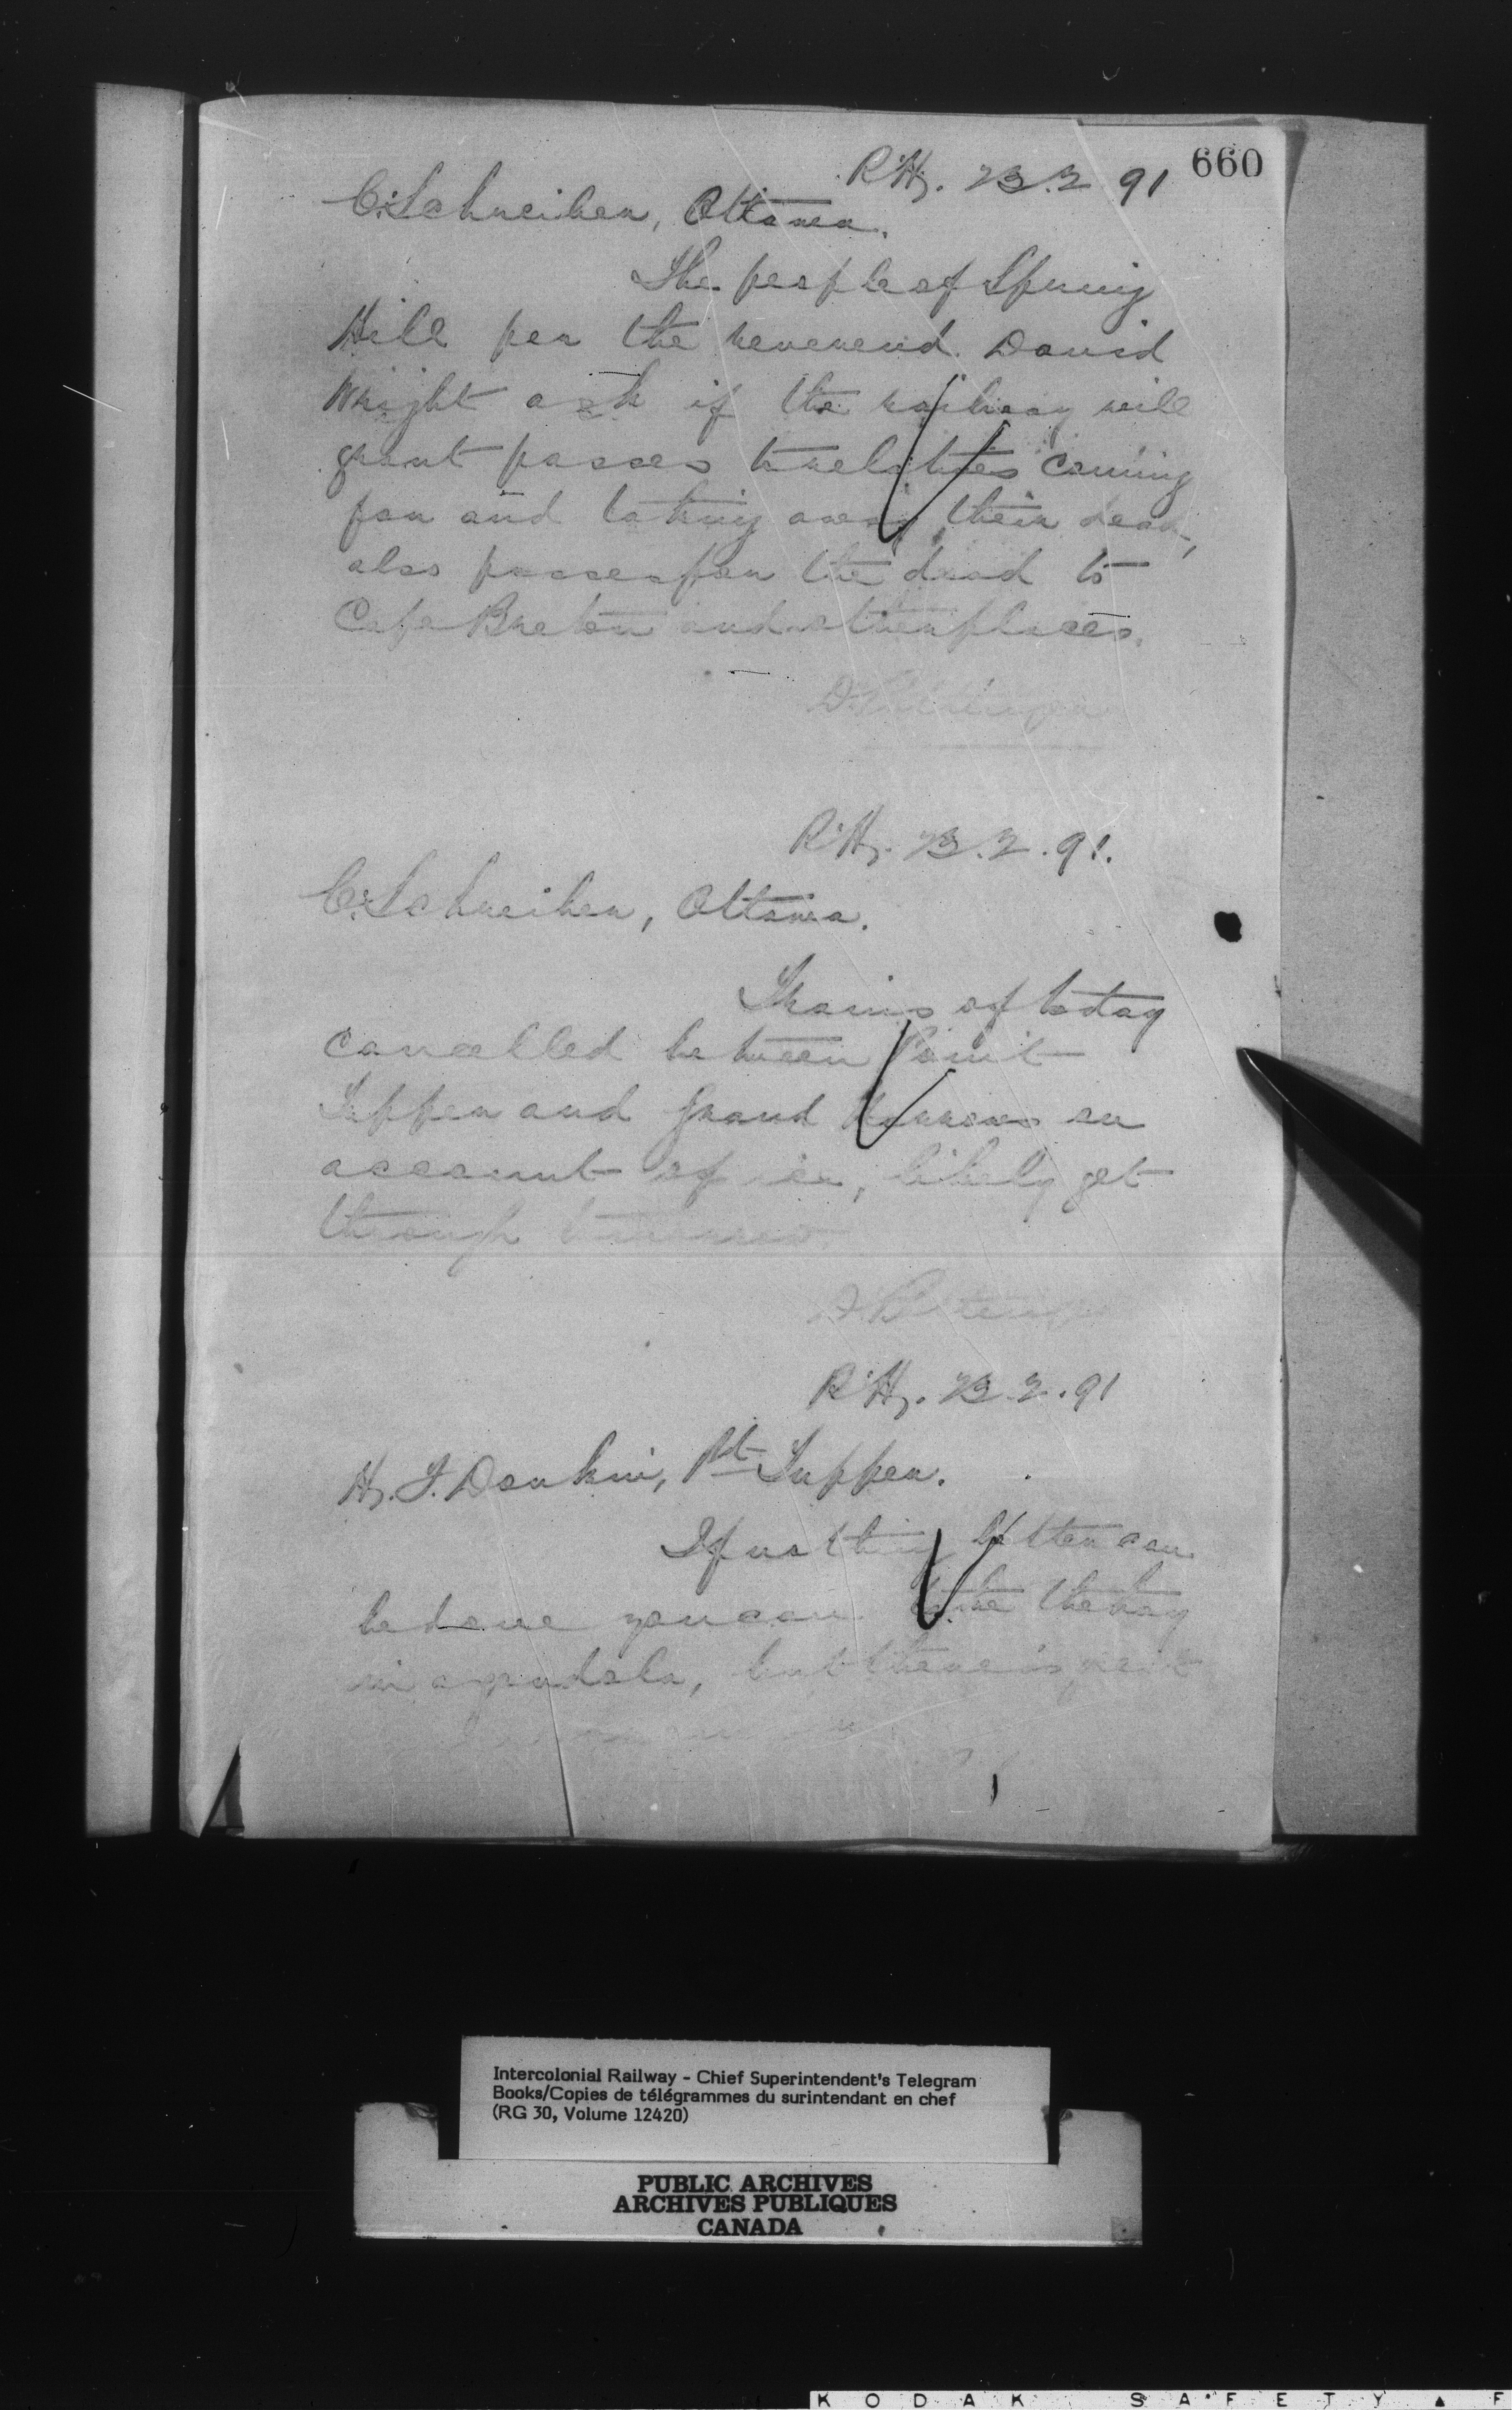 660
R'Hy. 23.2 91
C. Schreiber, Ottawa.
The people of Spring
Hill per the reverend David
Wright ask if the railway will
grant passes to relatives coming
for and taking away their dead,
also passes for the dead to
Cape Breton and other places.
D. Pottinger
R'Hy. 23.2.91.
C. Schreiber, Ottawa.
Trains of today
cancelled between Point
Tupper and Grand Narrows on
account of ice, likely get
through tomorrow.
D. Pottinger
R'Hy. 23.2.91
H. F. Donkin, Pt Tupper.
If nothing better can
be done you can take the hay
in a gondola, but there is
Intercolonial Railway - Chief Superintendent's Telegram
Books/Copies de télégrammes du surintendant en chef
(RG 30, Volume 12420)
PUBLIC ARCHIVES
ARCHIVES PUBLIQUES
CANADA
KODAK SAFETY ▲ F